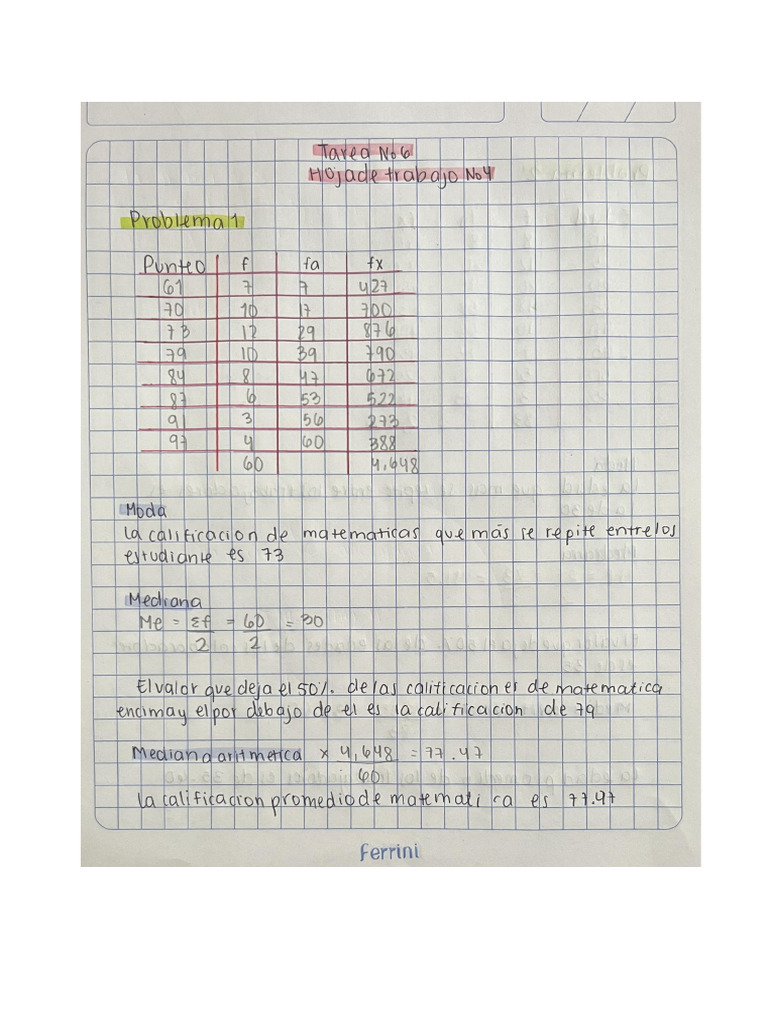 Tarea No6
Hoja de trabajo No4
Problema 1
Punteo f fa fx
61 7 7 427
70 10 17 700
73 12 29 876
79 10 39 790
84 8 47 672
87 6 53 522
91 3 56 273
97 4 60 388
60 4,648
Moda
La calificacion de matematicas que más se repite entre los
estudiante es 73
Mediana
Me = Σf/2 = 60/2 = 30
El valor que deja el 50%. de las calificaciones de matematica
encima y el por debajo de el es la calificacion de 79
Mediana aritmetica x 4,648/60 = 77.47
la calificacion promedio de matemati ca es 77.47
Ferrini